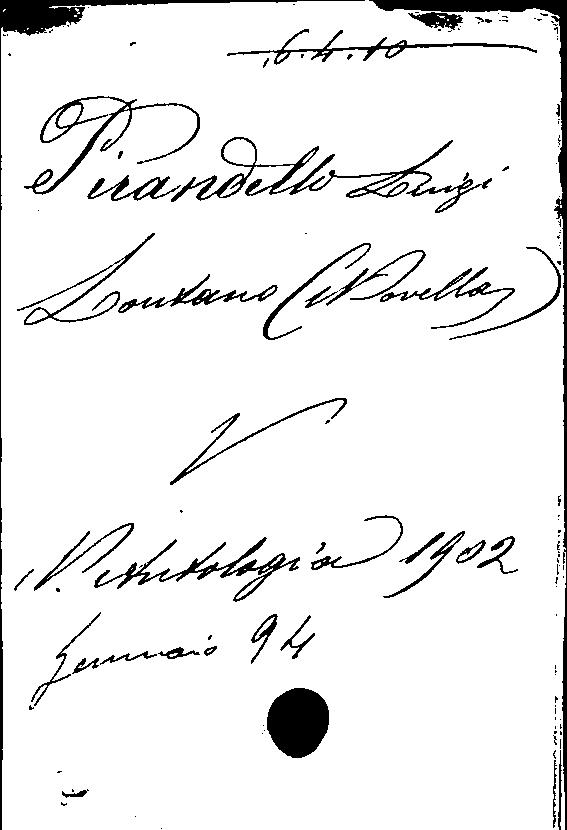 6.4.10
Pirandello Luigi
Lontano (Novella)
V
N. Antologia 1902
Gennaio 94